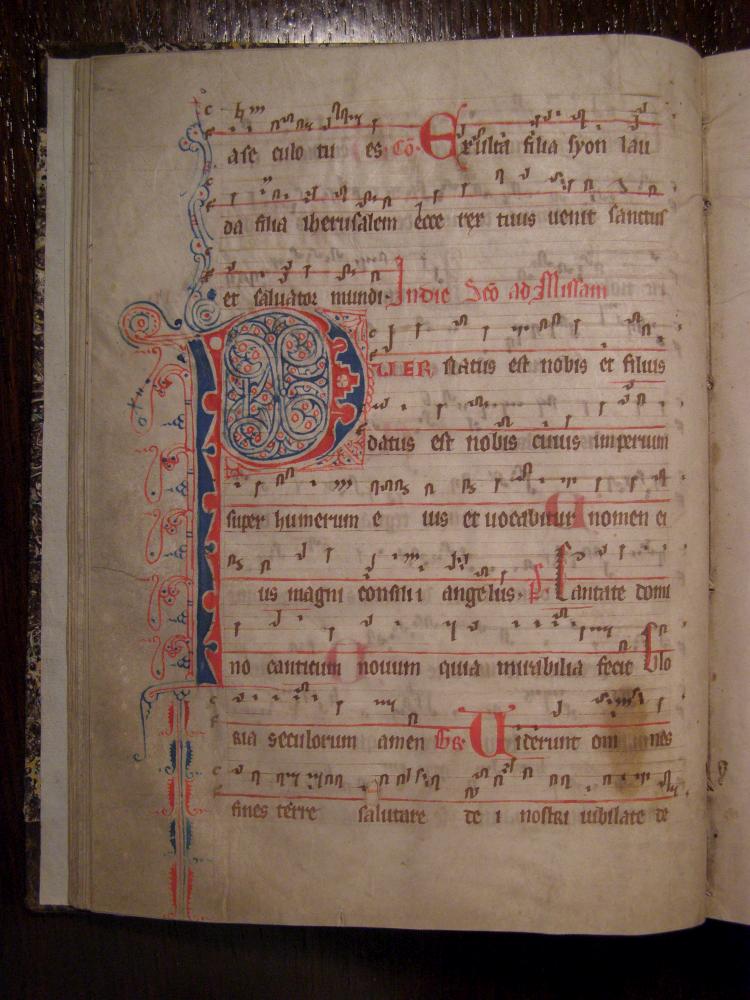 a se culo tu es Co. Exulta filia syon lau
da filia iherusalem ecce rex tuus uenit sanctus
et saluator mundi. In die Sco ad Missam
PUER natus est nobis et filius
datus est nobis cuius imperium
super humerum e ius et uocabitur nomen ei
us magni consilii angelus. Ps Cantate domi
no canticum nouum quia mirabilia fecit Glo
ria seculorum amen Gr. Uiderunt om nes
fines terre salutare de i nostri iubilate de